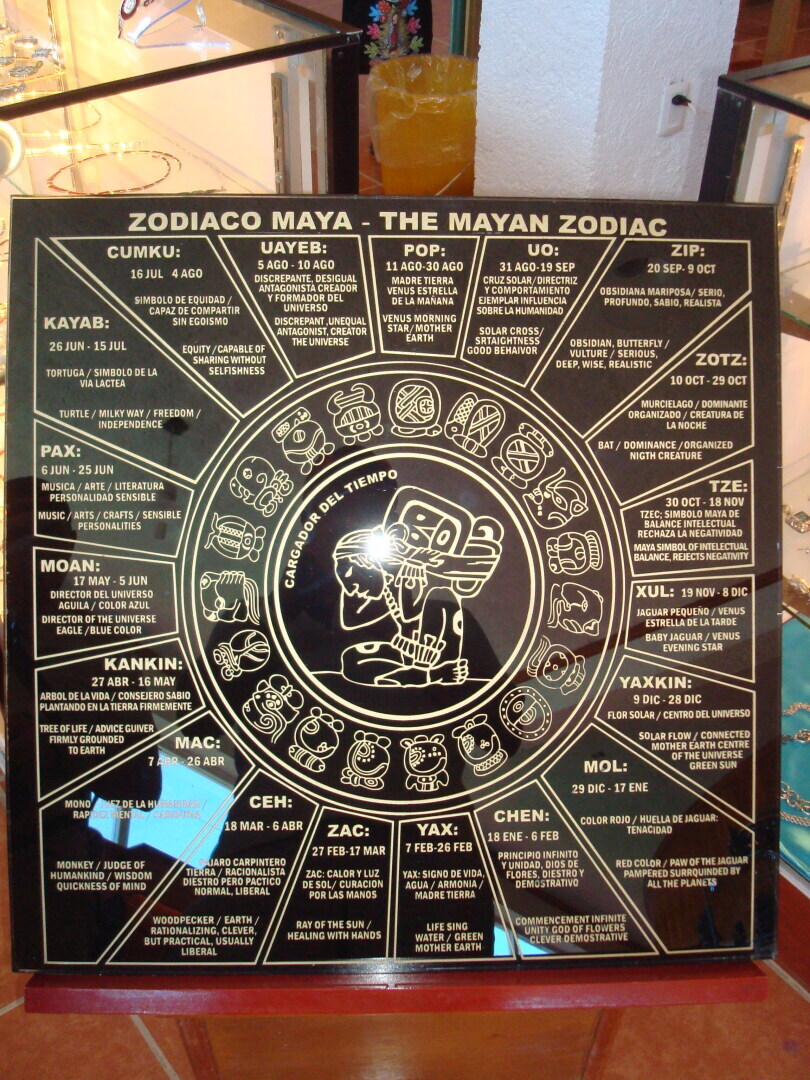 ZODIACO MAYA - THE MAYAN ZODIAC
CUMKU:
16 JUL 4 AGO
SIMBOLO DE EQUIDAD /
CAPAZ DE COMPARTIR
SIN EGOISMO
EQUITY / CAPABLE OF
SHARING WITHOUT
SELFISHNESS
UAYEB:
5 AGO - 10 AGO
DISCREPANTE, DESIGUAL
ANTAGONISTA CREADOR
Y FORMADOR DEL
UNIVERSO
DISCREPANT, UNEQUAL
ANTAGONIST, CREATOR
THE UNIVERSE
POP:
11 AGO-30 AGO
MADRE TIERRA
VENUS ESTRELLA
DE LA MAÑANA
VENUS MORNING
STAR/MOTHER
EARTH
UO:
31 AGO-19 SEP
CRUZ SOLAR/DIRECTRIZ
Y COMPORTAMIENTO
EJEMPLAR INFLUENCIA
SOBRE LA HUMANIDAD
SOLAR CROSS/
SRTAIGHTNESS
GOOD BEHAIVOR
ZIP:
20 SEP- 9 OCT
OBSIDIANA MARIPOSA/ SERIO,
PROFUNDO, SABIO, REALISTA
OBSIDIAN, BUTTERFLY /
VULTURE / SERIOUS,
DEEP, WISE, REALISTIC
ZOTZ:
10 OCT - 29 OCT
MURCIELAGO / DOMINANTE
ORGANIZADO / CREATURA DE
LA NOCHE
BAT / DOMINANCE /ORGANIZED
NIGTH CREATURE
TZE:
30 OCT - 18 NOV
TZEC; SIMBOLO MAYA DE
BALANCE INTELECTUAL
RECHAZA LA NEGATIVIDAD
MAYA SIMBOL OF INTELECTUAL
BALANCE, REJECTS NEGATIVITY
XUL: 19 NOV- 8 DIC
JAGUAR PEQUEÑO / VENUS
ESTRELLA DE LA TARDE
BABY JAGUAR / VENUS
EVENING STAR
YAXKIN:
9 DIC - 28 DIC
FLOR SOLAR / CENTRO DEL UNIVERSO
SOLAR FLOW / CONNECTED
MOTHER EARTH CENTRE
OF THE UNIVERSE
GREEN SUN
MOL:
29 DIC - 17 ENE
COLOR ROJO / HUELLA DE JAGUAR:
TENACIDAD
RED COLOR / PAW OF THE JAGUAR
PAMPERED SURRQUINDED BY
ALL THE PLANETS
CHEN:
18 ENE - 6 FEB
PRINCIPIO INFINITO
Y UNIDAD, DIOS DE
FLORES, DIESTRO Y
DEMOSTRATIVO
COMMENCEMENT INFINITE
UNITY GOD OF FLOWERS
CLEVER DEMOSTRATIVE
YAX:
7 FEB-26 FEB
YAX: SIGNO DE VIDA,
AGUA / ARMONIA /
MADRE TIERRA
LIFE SING
WATER / GREEN
MOTHER EARTH
ZAC:
27 FEB-17 MAR
ZAC: CALOR Y LUZ
DE SOL/ CURACION
POR LAS MANOS
RAY OF THE SUN /
HEALING WITH HANDS
CEH:
18 MAR - 6 ABR
PAJARO CARPINTERO
TIERRA / RACIONALISTA
DIESTRO PERO PACTICO
NORMAL, LIBERAL
WOODPECKER / EARTH /
RATIONALIZING, CLEVER,
BUT PRACTICAL, USUALLY
LIBERAL
MAC:
7 ABR - 26 ABR
MONO / JUEZ DE LA HUMANIDAD /
MONKEY / JUDGE OF
HUMANKIND / WISDOM
QUICKNESS OF MIND
KANKIN:
27 ABR - 16 MAY
ARBOL DE LA VIDA / CONSEJERO SABIO
PLANTANDO EN LA TIERRA FIRMEMENTE
TREE OF LIFE / ADVICE GUIVER
FIRMLY GROUNDED
TO EARTH
MOAN:
17 MAY - 5 JUN
DIRECTOR DEL UNIVERSO
AGUILA / COLOR AZUL
DIRECTOR OF THE UNIVERSE
EAGLE /BLUE COLOR
PAX:
6 JUN - 25 JUN
MUSICA / ARTE / LITERATURA
PERSONALIDAD SENSIBLE
MUSIC / ARTS / CRAFTS / SENSIBLE
PERSONALITIES
KAYAB:
26 JUN - 15 JUL
TORTUGA / SIMBOLO DE LA
VIA LACTEA
TURTLE / MILKY WAY / FREEDOM /
INDEPENDENCE
CARGADOR DEL TIEMPO